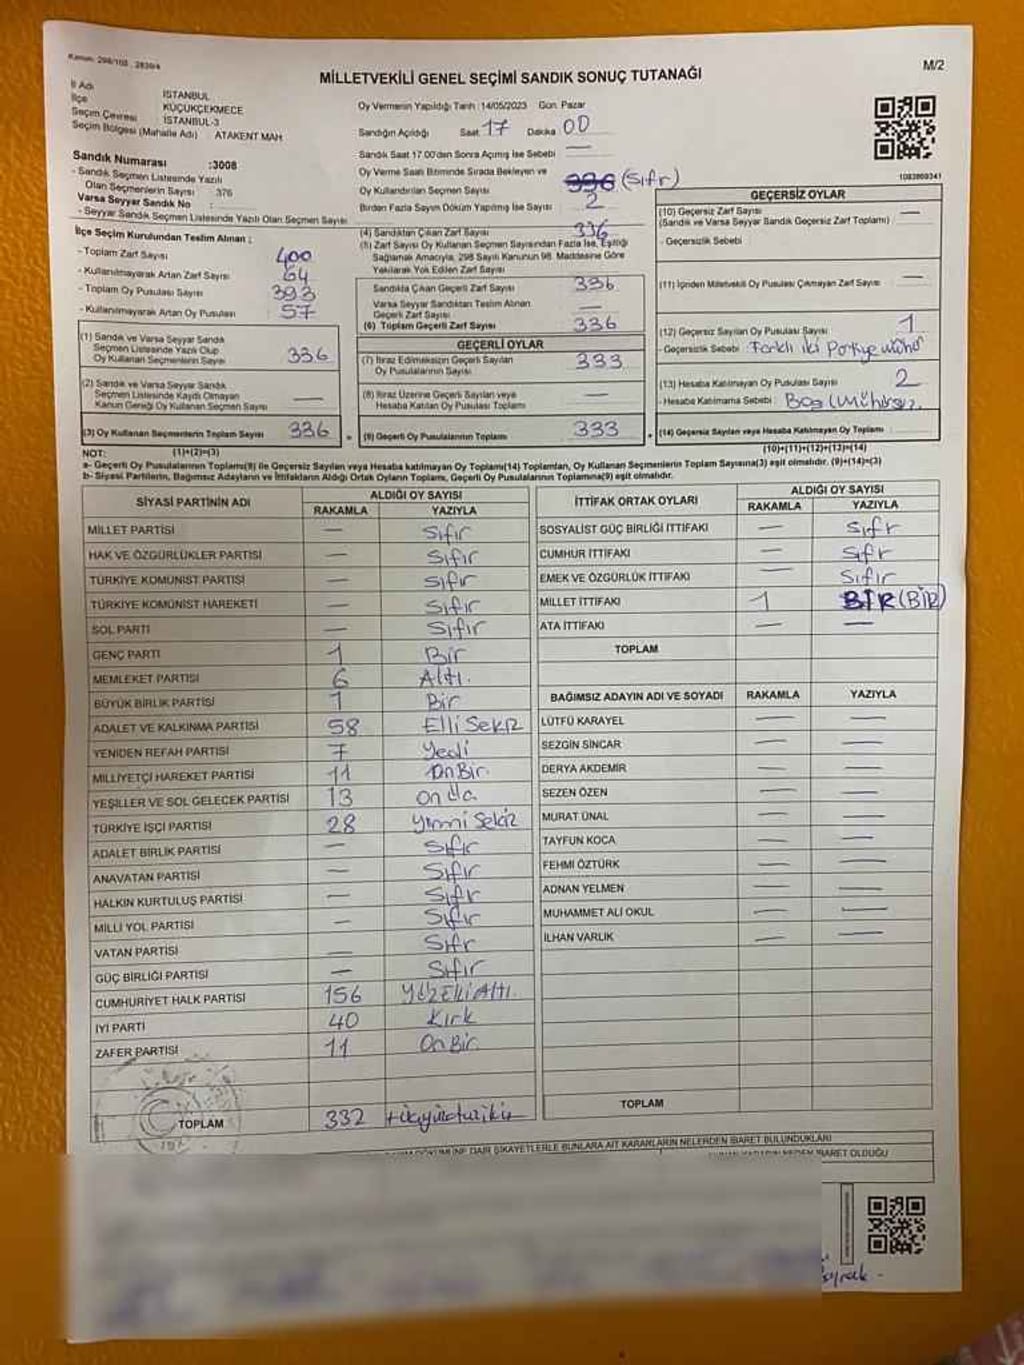 Kanun: 298/105, 2839/4
M/2
MİLLETVEKİLİ GENEL SEÇİMİ SANDIK SONUÇ TUTANAĞI
İl Adı İSTANBUL
İlçe KÜÇÜKÇEKMECE
Seçim Çevresi İSTANBUL-3
Seçim Bölgesi (Mahalle Adı) ATAKENT MAH
Sandık Numarası :3008
- Sandık Seçmen Listesinde Yazılı
Olan Seçmenlerin Sayısı 376
Varsa Seyyar Sandık No :
- Seyyar Sandık Seçmen Listesinde Yazılı Olan Seçmen Sayısı
Oy Vermenin Yapıldığı Tarih :14/05/2023 Gün: Pazar
Sandığın Açıldığı Saat 17 Dakika 00
Sandık Saat 17:00'den Sonra Açımış İse Sebebi —
Oy Verme Saati Bitiminde Sırada Bekleyen ve
Oy Kullandırılan Seçmen Sayısı 336 (Sıfr)
Birden Fazla Sayım Döküm Yapılmış İse Sayısı 2
1083869341
İlçe Seçim Kurulundan Teslim Alınan :
- Toplam Zarf Sayısı 400
- Kullanılmayarak Artan Zarf Sayısı 64
- Toplam Oy Pusulası Sayısı 393
- Kullanılmayarak Artan Oy Pusulası 57
(1) Sandık ve Varsa Seyyar Sandık
Seçmen Listesinde Yazılı Olup
Oy Kullanan Seçmenlerin Sayısı 336
(2) Sandık ve Varsa Seyyar Sandık
Seçmen Listesinde Kaydı Olmayan
Kanun Gereği Oy Kullanan Seçmen Sayısı —
(3) Oy Kullanan Seçmenlerin Toplam Sayısı 336
(1)+(2)=(3)
(4) Sandıktan Çıkan Zarf Sayısı 336
(5) Zarf Sayısı Oy Kullanan Seçmen Sayısından Fazla İse, Eşitliği
Sağlamak Amacıyla, 298 Sayılı Kanunun 98. Maddesine Göre
Yakılarak Yok Edilen Zarf Sayısı
Sandıkta Çıkan Geçerli Zarf Sayısı 336
Varsa Seyyar Sandıktan Teslim Alınan
Geçerli Zarf Sayısı —
(6) Toplam Geçerli Zarf Sayısı 336
GEÇERLİ OYLAR
(7) İtiraz Edilmeksizin Geçerli Sayılan
Oy Pusulalarının Sayısı 333
(8) İtiraz Üzerine Geçerli Sayılan veya
Hesaba Katılan Oy Pusulaları Toplamı —
(9) Geçerli Oy Pusulalarının Toplamı 333
GEÇERSİZ OYLAR
(10) Geçersiz Zarf Sayısı —
(Sandık ve Varsa Seyyar Sandık Geçersiz Zarf Toplamı)
- Geçersizlik Sebebi
(11) İçinden Milletvekili Oy Pusulası Çıkmayan Zarf Sayısı —
(12) Geçersiz Sayılan Oy Pusulası Sayısı 1
- Geçersizlik Sebebi : Farklı iki Partiye mühür
(13) Hesaba Katılmayan Oy Pusulası Sayısı 2
- Hesaba Katılmama Sebebi : Boş (mühürsüz
(14) Geçersiz Sayılan veya Hesaba Katılmayan Oy Toplamı
(10)+(11)+(12)+(13)=(14)
NOT:
a- Geçerli Oy Pusulalarının Toplamı(9) ile Geçersiz Sayılan veya Hesaba katılmayan Oy Toplamı(14) Toplamları, Oy Kullanan Seçmenlerin Toplam Sayısına(3) eşit olmalıdır. (9)+(14)=(3)
b- Siyasi Partilerin, Bağımsız Adayların ve İttifakların Aldığı Ortak Oyların Toplamı, Geçerli Oy Pusulalarının Toplamına(9) eşit olmalıdır.
SİYASİ PARTİNİN ADI ALDIĞI OY SAYISI
RAKAMLA YAZIYLA
MİLLET PARTİSİ — Sıfır
HAK VE ÖZGÜRLÜKLER PARTİSİ — Sıfır
TÜRKİYE KOMÜNİST PARTİSİ — Sıfır
TÜRKİYE KOMÜNİST HAREKETİ — Sıfır
SOL PARTİ — Sıfır
GENÇ PARTİ 1 Bir
MEMLEKET PARTİSİ 6 Altı.
BÜYÜK BİRLİK PARTİSİ 1 Bir
ADALET VE KALKINMA PARTİSİ 58 Elli Sekiz
YENİDEN REFAH PARTİSİ 7 Yedi
MİLLİYETÇİ HAREKET PARTİSİ 11 On Bir.
YEŞİLLER VE SOL GELECEK PARTİSİ 13
TÜRKİYE İŞÇİ PARTİSİ 28 Yirmi Sekiz
ADALET BİRLİK PARTİSİ — Sıfır
ANAVATAN PARTİSİ — Sıfır
HALKIN KURTULUŞ PARTİSİ — Sıfır
MİLLİ YOL PARTİSİ — Sıfır
VATAN PARTİSİ — Sıfr
GÜÇ BİRLİĞİ PARTİSİ — Sıfır
CUMHURİYET HALK PARTİSİ 156 Yüz Elli Altı.
İYİ PARTİ 40 Kırk
ZAFER PARTİSİ 11 On Bir
TOPLAM 332
İTTİFAK ORTAK OYLARI ALDIĞI OY SAYISI
RAKAMLA YAZIYLA
SOSYALİST GÜÇ BİRLİĞİ İTTİFAKI — Sıfr
CUMHUR İTTİFAKI — Sıfr
EMEK VE ÖZGÜRLÜK İTTİFAKI — Sıfır
MİLLET İTTİFAKI 1 BİR (BİR)
ATA İTTİFAKI — —
TOPLAM
BAĞIMSIZ ADAYIN ADI VE SOYADI RAKAMLA YAZIYLA
LÜTFÜ KARAYEL — —
SEZGİN SİNCAR — —
DERYA AKDEMİR — —
SEZEN ÖZEN — —
MURAT ÜNAL — —
TAYFUN KOCA — —
FEHMİ ÖZTÜRK — —
ADNAN YELMEN — —
MUHAMMET ALİ OKUL — —
İLHAN VARLIK — —
TOPLAM
DÖKÜMÜNE DAİR ŞİKAYETLERLE BUNLARA AİT KARARLARIN NELERDEN İBARET BULUNDUKLARI
İBARET OLDUĞU